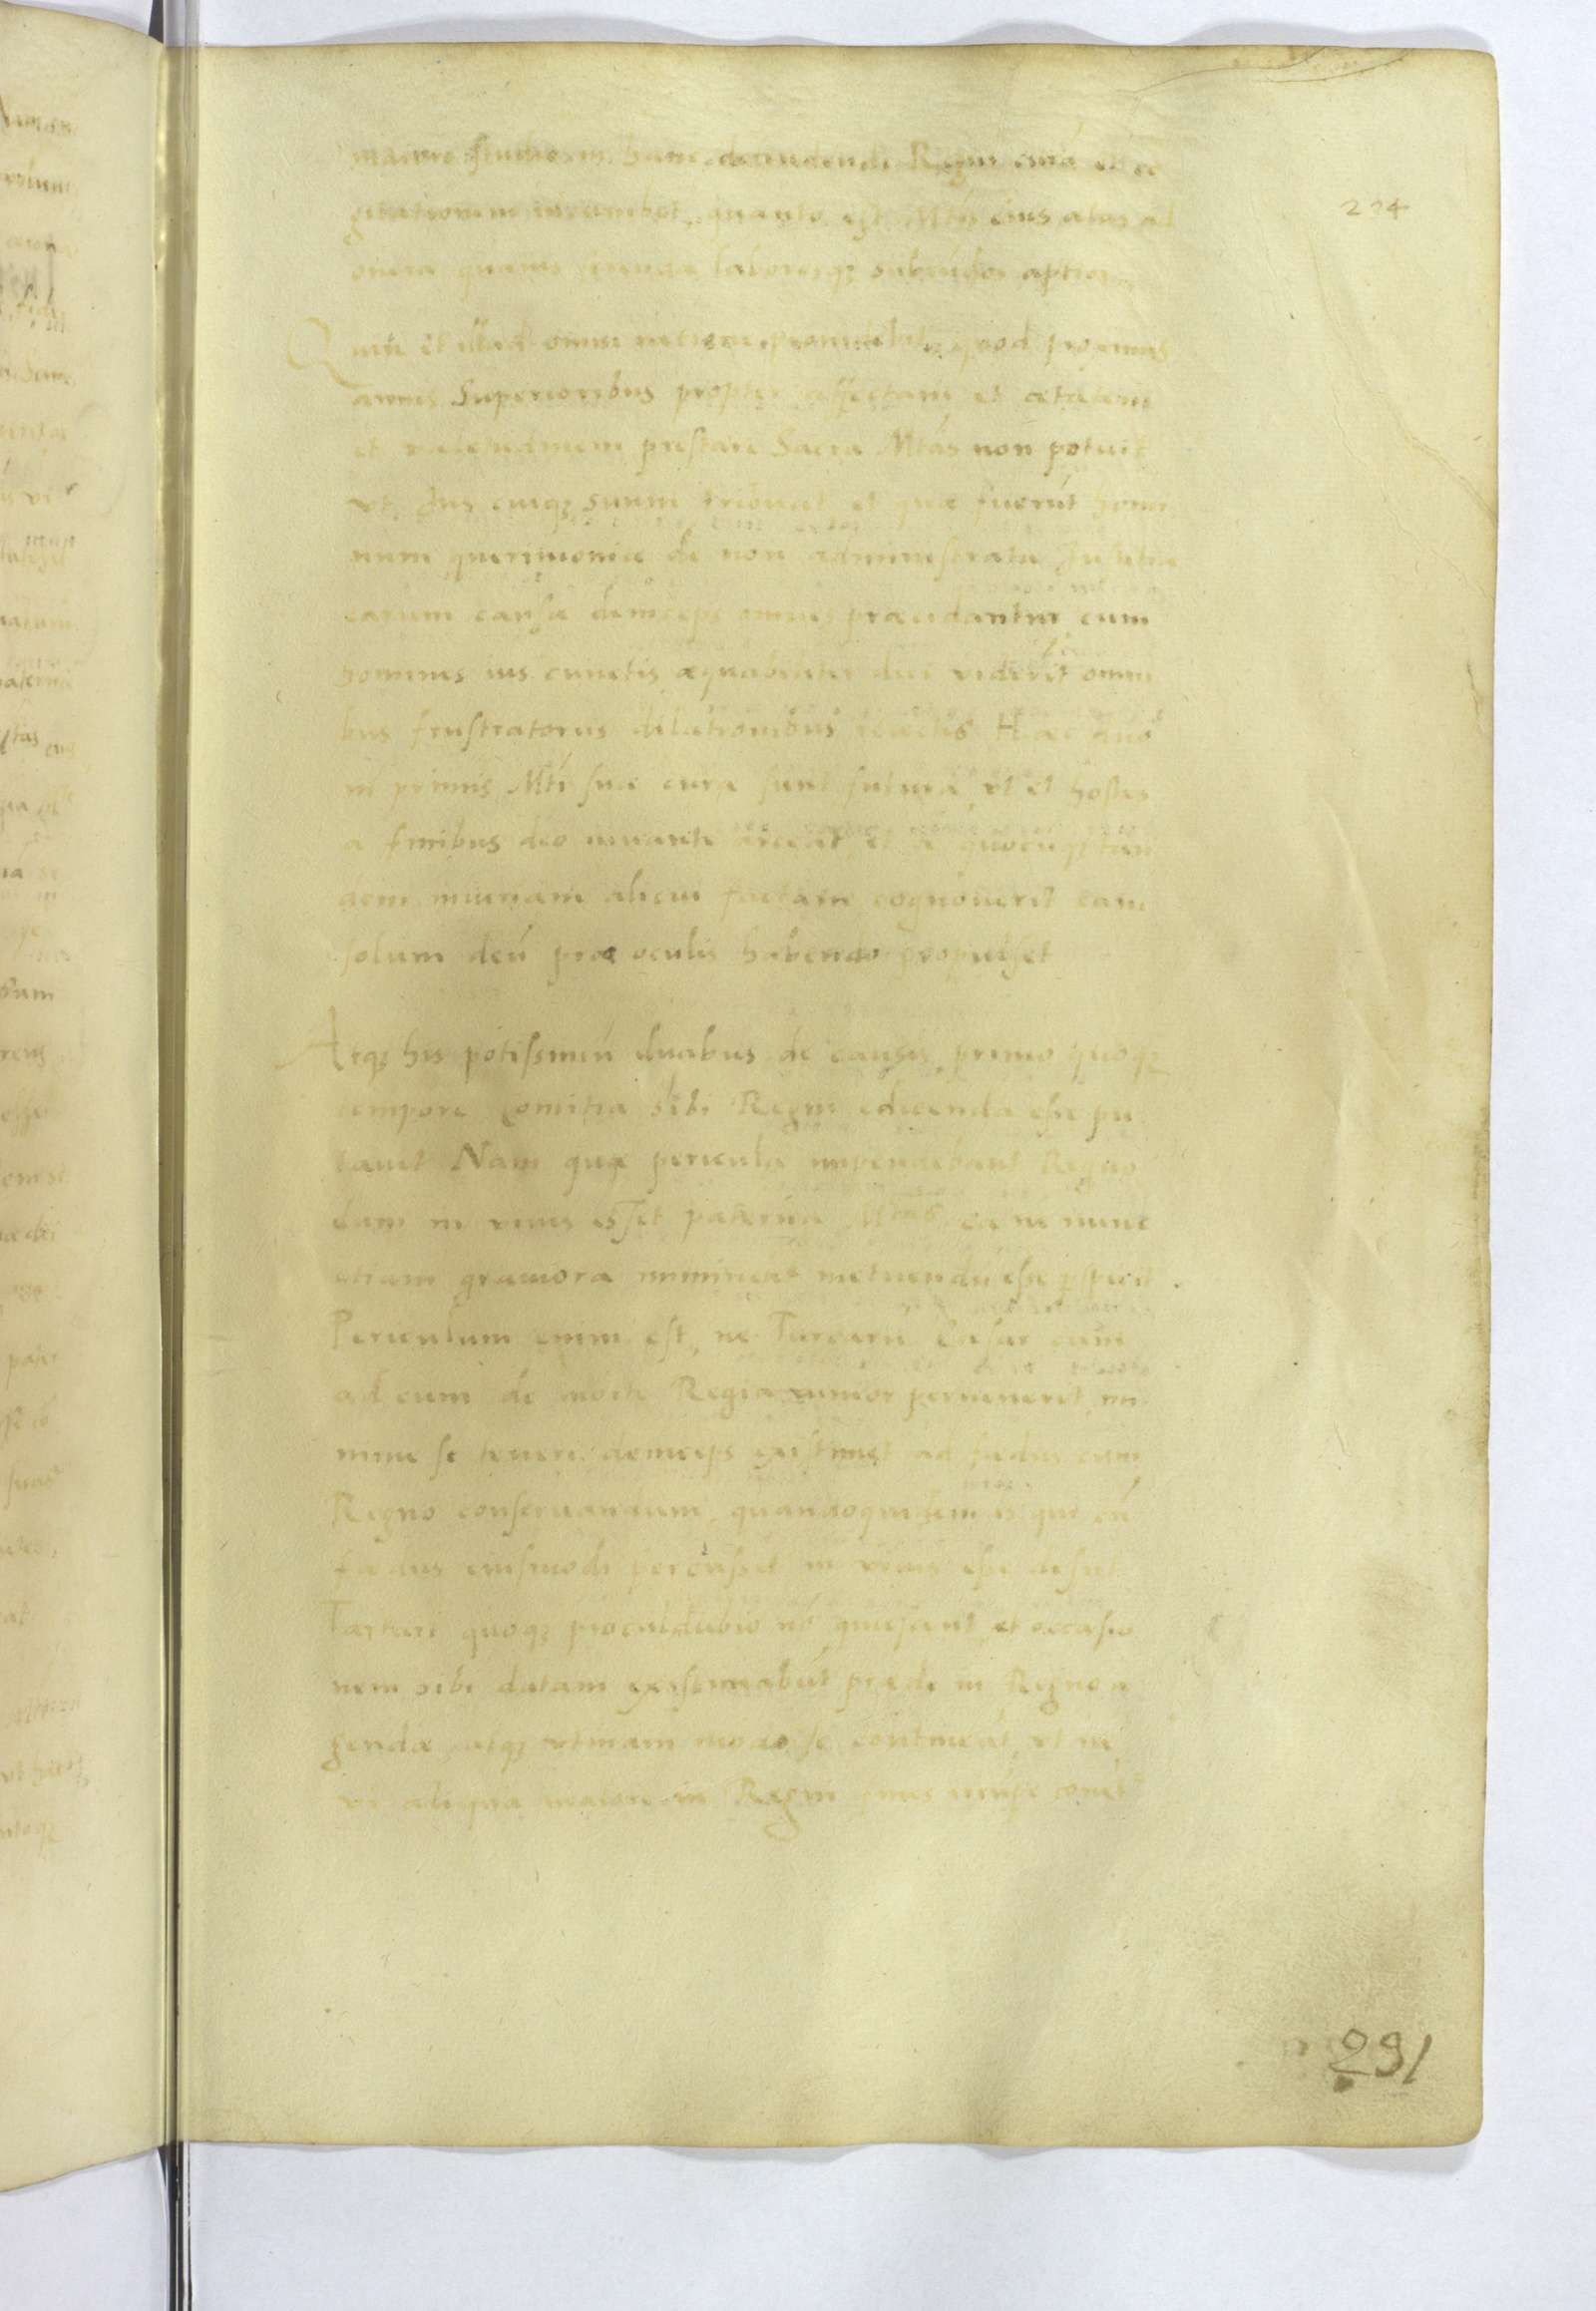 maiore studio in hanc defendendi Regni curā et co
gitationem incumbet, quanto est Mtis eius aetas ad
onera quaevis ferenda laboresqz subeundos aptior
204
Quin et illud omni ratione providebit, quod proximis
annis Superioribus propter affectam et aetatem
et valetudinem prestare Sacra Mtas non potuit
vt Jus cuiqz suum tribuat et quae fuerūt homi
num querimoniae de non administrata Justitia
earum causae deinceps omnes praecidantur cum
homines ius cunctis aequabiliter dici viderīt omni
bus frustratoriis dilationibus reiectis Haec duo
in primis Mti suae curae sunt futura, vt et hostes
a finibus deo iuvante arceat et a quocūqz tan
dem iniuriam alicui factam cognoverit eam
solum deū prae oculis habendo propulset
Atqz his potissimū duabus de causis primo quoqz
tempore Comitia sibi Regni edicenda esse pu
tavit Nam quae pericula impendebant Regno
dum in vivis esset paterna Mtas ea ne nunc
etiam graviora immineāt metuendū esse pspicit.
Periculum enim est, ne Turcarū Cesar cum
ad eum de morte Regia rumor pervenerit mi
nime se teneri deinceps existimet ad foedus cum
Regno conservandum, quandoquidem is quo cū
foedus eiusmodi percussit in vivis esse desiit
Tartari quoqz proculdubio nō quiescent et occasio
nem sibi datam existimabūt praedae in Regno a
gendae, atqz vtinam modo se contineāt, vt ne
vi aliqua maiore in Regni fines conet
291